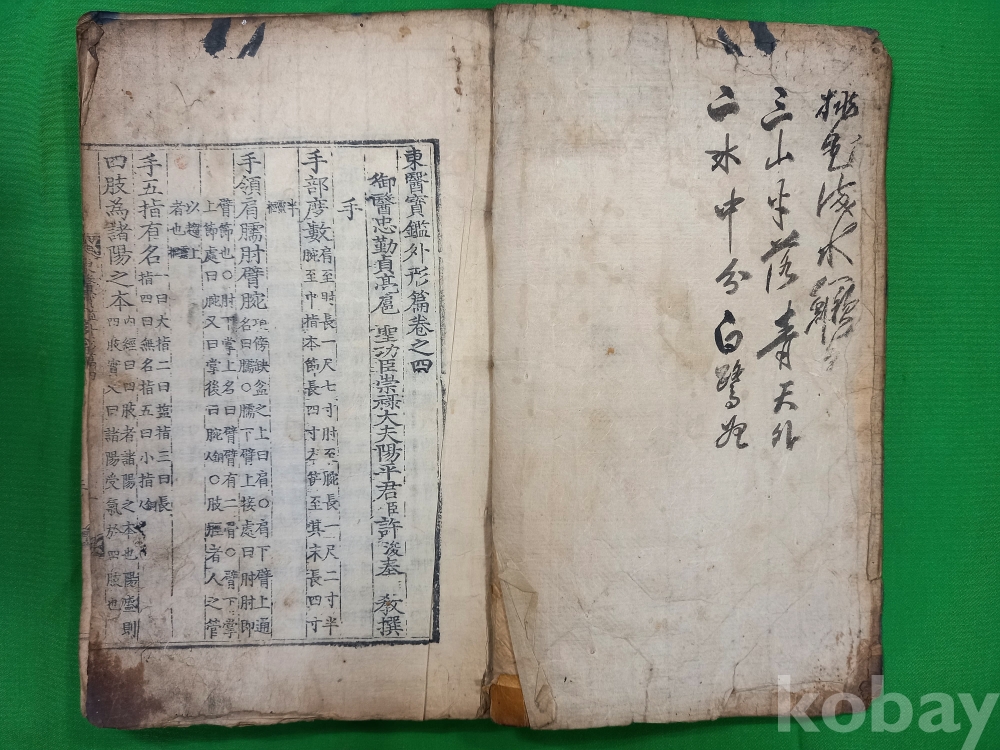 三山半落青天外
二水中分白鷺
東醫寶鑑外形篇卷之四
御醫忠勤貞亮扈聖功臣崇祿大夫陽平君臣許浚奉 教撰
手
手部度數 肩至肘長一尺七寸肘至腕長一尺二寸半
腕至中指本節長四寸本節至其末長四寸
半
手領肩臑肘臂腕 項傍缺盆之上曰肩○肩下臂上通
名曰臑○臑下臂上接處曰肘肘即
臂節也○肘下掌上名曰臂臂有二骨○臂下掌
上節處曰腕又曰掌後曰腕○肢者人之管
以趨上
者也
手五指有名 一曰大指二曰鹽指三曰長
指四曰無名指五曰小指
四肢為諸陽之本 內經曰四肢者諸陽之本也陽盛則
四肢實又曰諸陽受氣於四肢也
kobay